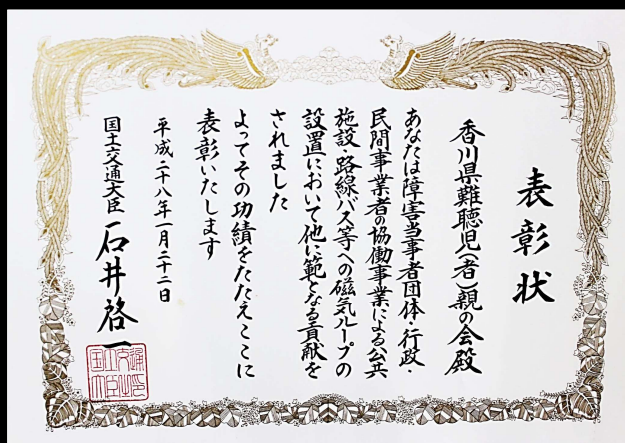 表彰状
香川県難聴児(者)親の会殿
あなたは障害当事者団体・行政・
民間事業者の協働事業による公共
施設・路線バス等への磁気ループの
設置において他に範となる貢献を
されました
よってその功績をたたえここに
表彰いたします
平成二十八年一月二十二日
国土交通大臣 石井啓一
国土交通大臣之印